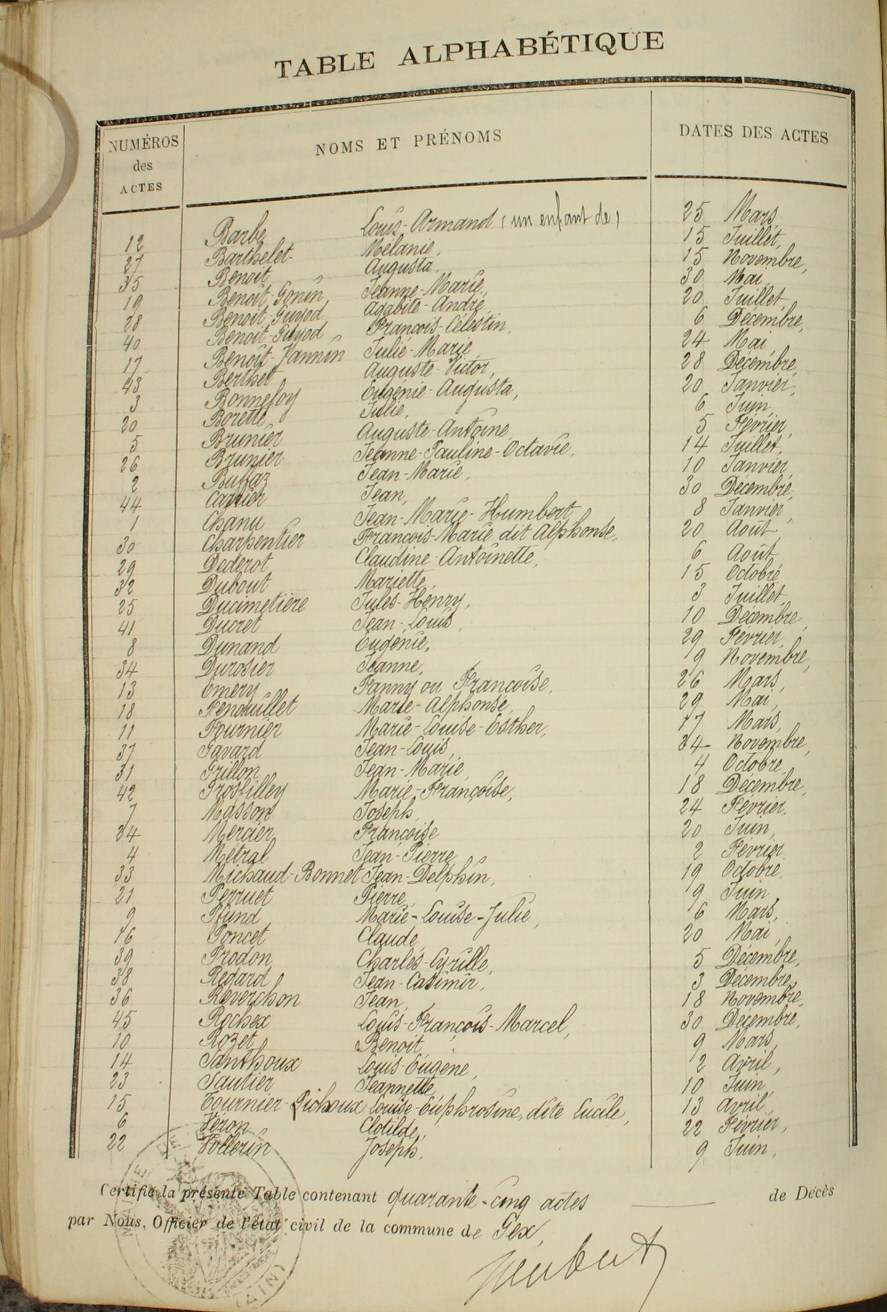 TABLE ALPHABÉTIQUE
NUMÉROS des ACTES NOMS ET PRÉNOMS DATES DES ACTES
12 Barbe Louis-Armand (un enfant de) 25 Mars,
27 Barthelet Mélanie, 15 Juillet,
35 Benoit Augusta, 15 Novembre,
19 Benoit-Gonin Jeanne-Marie, 30 Mai,
28 Benoit-Guyod Agabite-André 20 Juillet
40 Benoit-Guyod François-Célestin, 6 Décembre,
17 Benoit-Jannin Julie-Marie 24 Mai,
43 Berthet Auguste-Victor, 28 Décembre,
3 Bonnefoy Eugénie-Augusta, 20 Janvier,
20 Boretti Julie, 6 Juin,
5 Brunier Auguste-Antoine 5 Février,
26 Brunier Jeanne-Pauline-Octavie, 14 Juillet,
2 Buffaz Jean-Marie, 10 Janvier,
44 Carrier Jean, 30 Décembre,
1 Chanu Jean-Marie-Humbert, 8 Janvier,
30 Charpentier François-Marie dit Alphonse, 20 Août
29 Dederot Claudine-Antoinette, 6 Août
32 Dubout Mariette, 15 Octobre
25 Ducimetière Jules-Henry, 3 Juillet,
41 Ducret Jean-Louis, 10 Décembre,
8 Dunand Eugénie, 29 Février,
34 Durosier Jeanne, 9 Novembre,
13 Emery Fanny ou Françoise, 26 Mars,
18 Fenouillet Marie-Alphonse, 29 Mai,
11 Fournier Marie-Louise-Esther, 17 Mars,
37 Gavard Jean-Louis, 24 Novembre,
31 Grillon Jean-Marie, 4 Octobre,
42 Grosfilley Marie-Françoise, 18 Décembre,
7 Masson Joseph, 24 Février,
24 Mercier Françoise 20 Juin,
4 Métral Jean-Pierre 2 Février
33 Michaud-Bonnet Jean-Delphin, 19 Octobre
21 Perruet Pierre, 9 Juin
9 Marie-Louise-Julie, 6 Mars,
16 Poncet Claude, 20 Mai,
39 Prodon Charles-Cyrille, 5 Décembre,
38 Regard Jean-Casimir, 3 Décembre,
36 Reverchon Jean, 18 Novembre,
45 Rochex Louis-François-Marcel, 30 Décembre,
10 Rozet Benoit, 9 Mars,
14 Santhoux Louis-Eugène, 2 Avril,
23 Sautier Jeannette 10 Juin
15 Tournier-Pichoux Louise-Euphrosine, dite Lucile, 13 Avril,
6 Véron Clotilde, 22 Février,
22 Vollerin Joseph, 9 Juin,
Certifié la présente Table contenant quarante-cinq actes de Décès
par Nous, Officier de l'état civil de la commune de Gex,